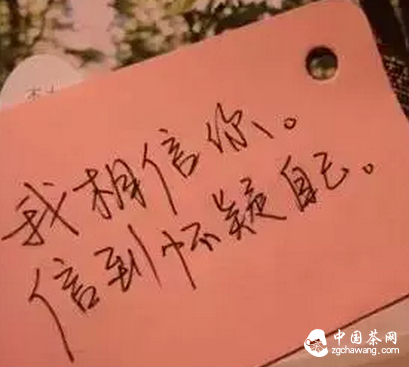 我相信你。
信到怀疑自己。
中国茶网
zgchawang.com